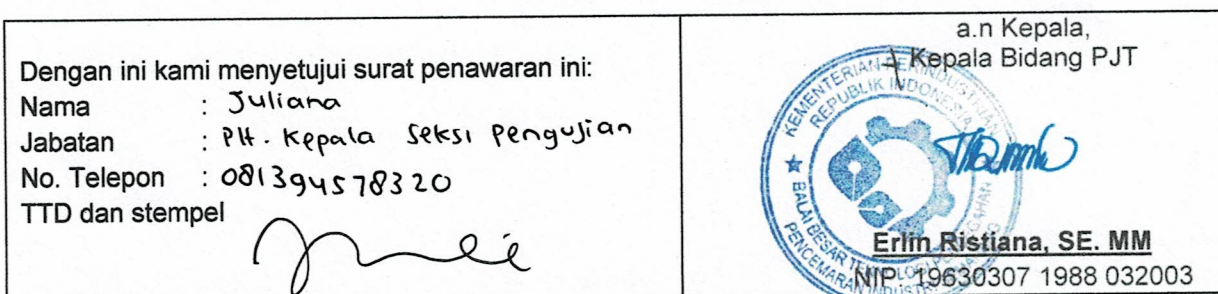 Dengan ini kami menyetujui surat penawaran ini:
Nama : Juliana
Jabatan : Plt. Kepala Seksi Pengujian
No. Telepon : 081394578320
TTD dan stempel
a.n Kepala,
Kepala Bidang PJT
KEMENTERIAN PERINDUSTRIAN
REPUBLIK INDONESIA
BALAI BESAR TEKNOLOGI
PENCEMARAN INDUSTRI
Erlin Ristiana, SE. MM
NIP. 19630307 1988 032003